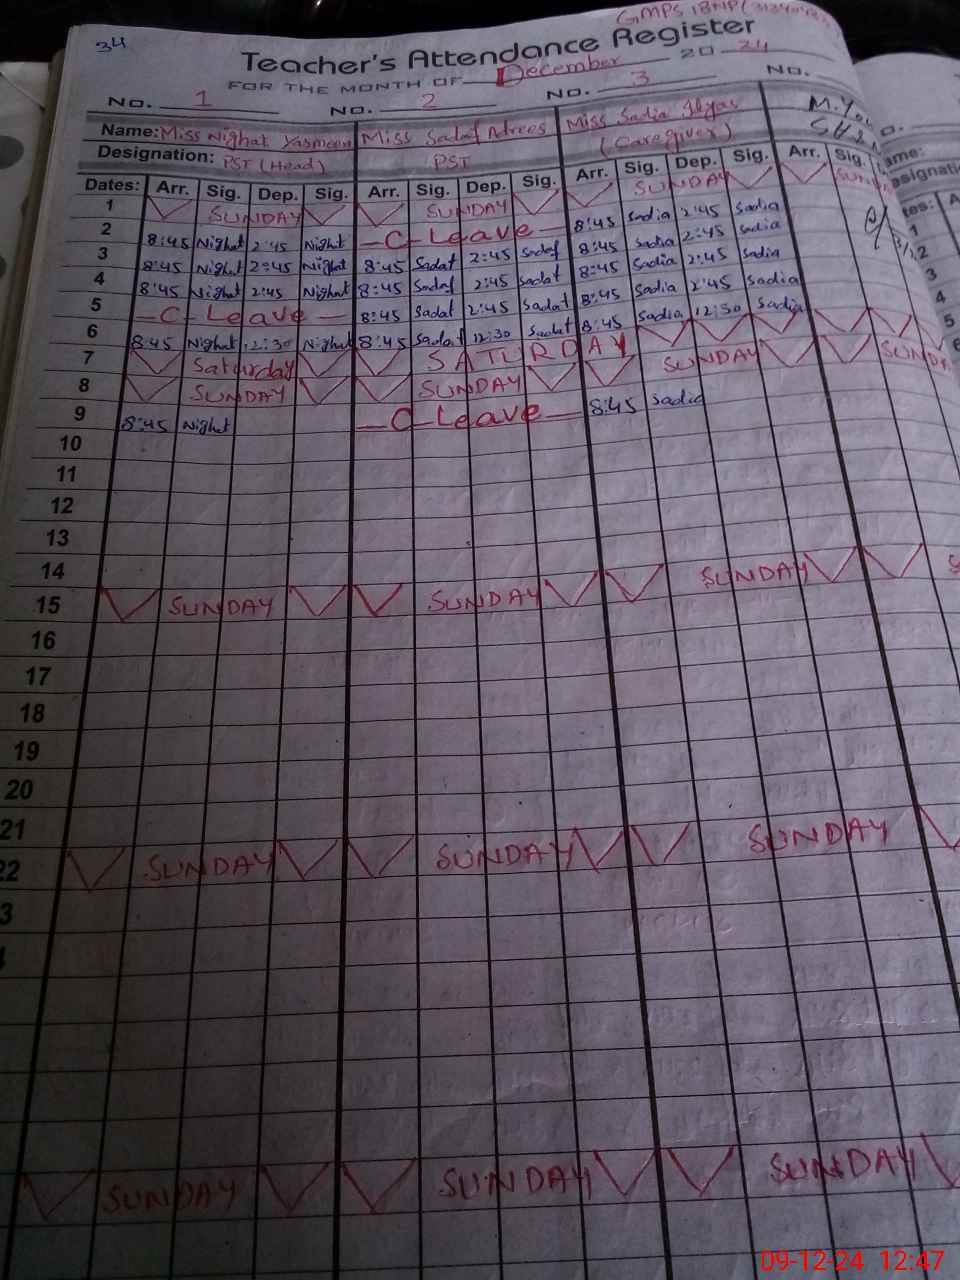 34
GMPS 1BNP
Teacher's Attendance Register
FOR THE MONTH OF December 2024
No. 1 No. 2 No. 3 No.
Name: Miss Nighat Yasmeen Miss Sadaf Adrees Miss Sadia Ilyas
Designation: PST (Head) PST (Caregiver)
Dates: Arr. Sig. Dep. Sig. Arr. Sig. Dep. Sig. Arr. Sig. Dep. Sig. Arr. Sig.
1 SUNDAY SUNDAY SUNDAY
2 8:45 Nighat 2:45 Nighat C-Leave 8:45 Sadia 2:45 Sadia
3 8:45 Nighat 2:45 Nighat 8:45 Sadaf 2:45 Sadaf 8:45 Sadia 2:45 Sadia
4 8:45 Nighat 2:45 Nighat 8:45 Sadaf 2:45 Sadaf 8:45 Sadia 2:45 Sadia
5 C-Leave 8:45 Sadaf 2:45 Sadaf 8:45 Sadia 2:45 Sadia
6 8:45 Nighat 12:30 Nighat 8:45 Sadaf 12:30 Sadaf 8:45 Sadia 12:30 Sadia
7 Saturday SATURDAY
8 SUNDAY SUNDAY SUNDAY
9 8:45 Nighat C-Leave 8:45 Sadia
10
11
12
13
14
15 SUNDAY SUNDAY SUNDAY
16
17
18
19
20
21
22 SUNDAY SUNDAY SUNDAY
3
SUNDAY SUNDAY SUNDAY
09-12-24 12:47